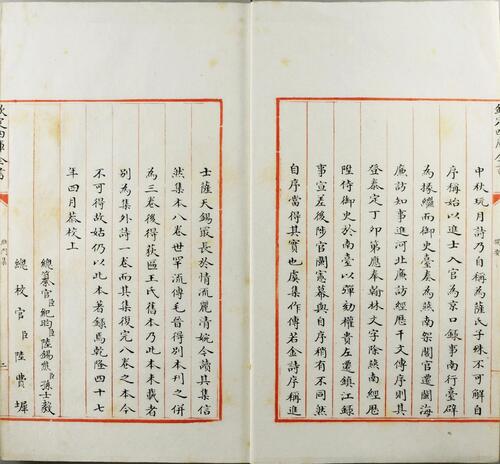 中秋玩月詩乃自稱為薩氏子殊不可解自
序稱始以進士入官為京口錄事南行臺辟
為掾繼而御史臺奏為燕南架閣官遷閩海
廉訪知事進河北廉訪經歷干文傳序則其
登泰定丁卯第應奉翰林文字除燕南經歷
陞侍御史於南臺以彈劾權貴左遷鎮江錄
事宣差後陟官閩憲幕與自序稍有不同然
自序當得其實也虞集作傅若金詩序稱進
士薩天錫最長於情流麗清婉今讀其集信
然集本八卷世罕流傳毛晉得別本刊之併
為三卷後得荻匾王氏舊本乃此本未載者
別為集外詩一卷而其集復完八卷之本今
不可得故姑仍以此本著録焉乾隆四十七
年四月恭校上
總纂官臣紀昀臣陸錫熊臣孫士毅
總校官臣陸費墀
欽定四庫全書